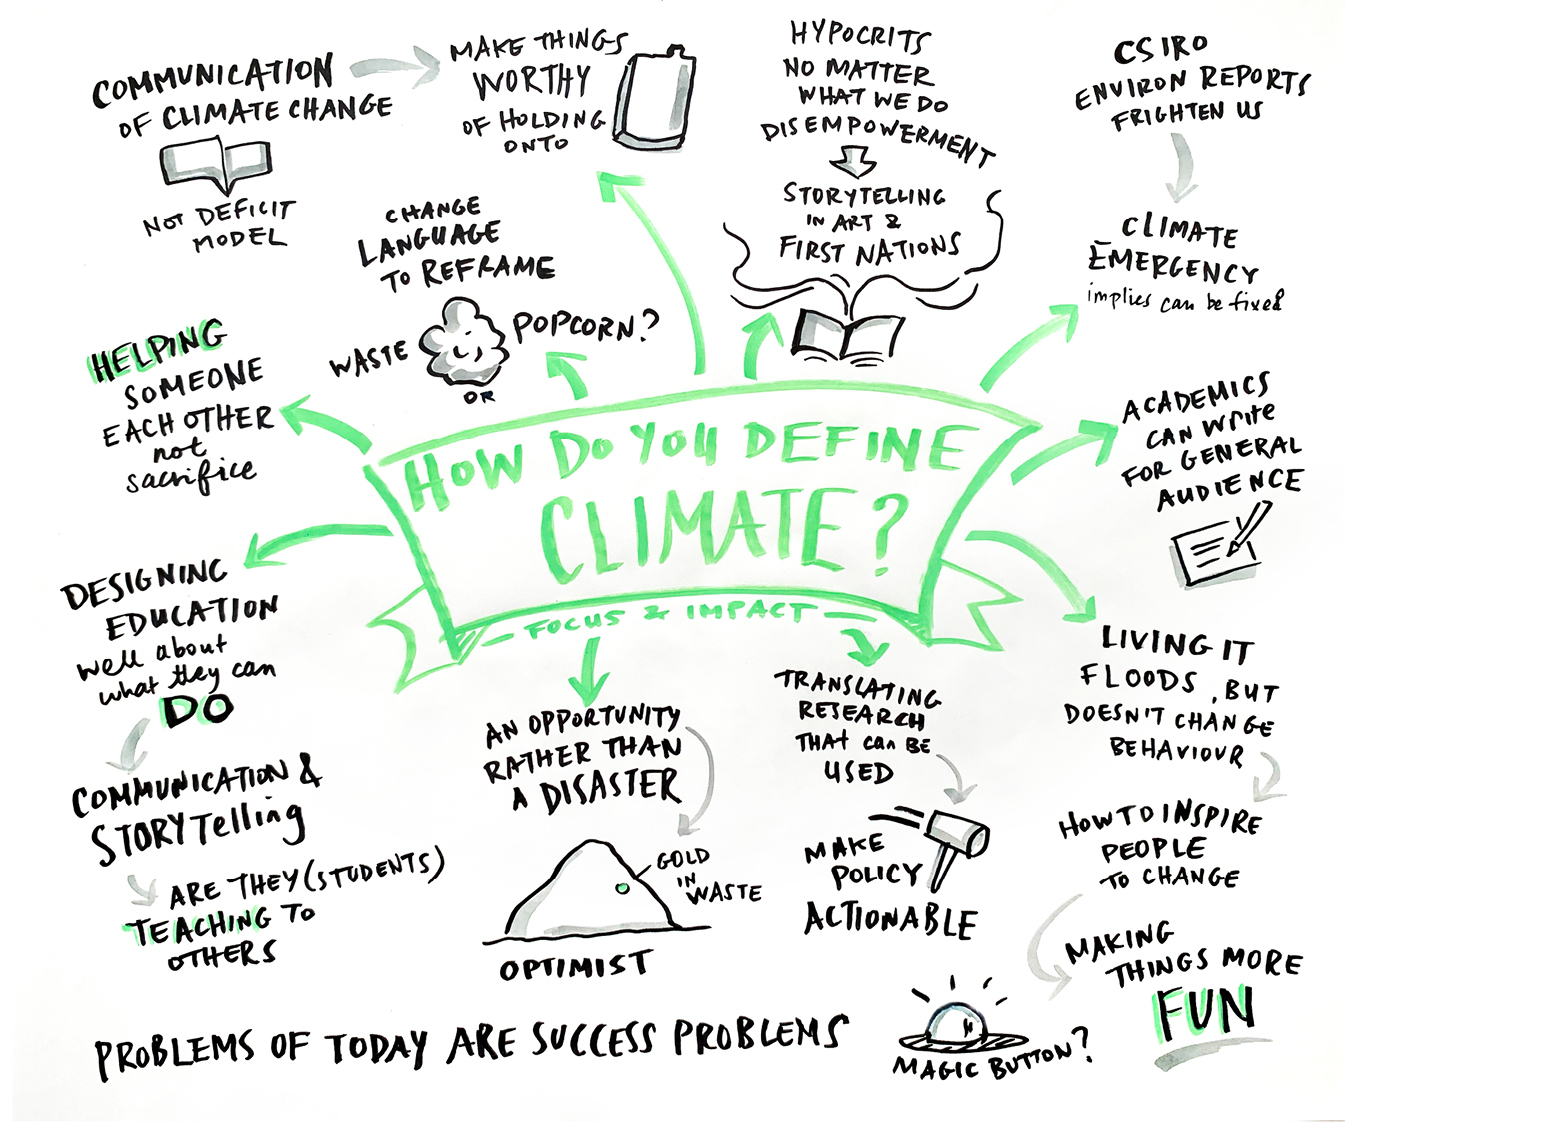 COMMUNICATION
OF CLIMATE CHANGE
NOT DEFICIT
MODEL
MAKE THINGS
WORTHY
OF HOLDING
ONTO
HYPOCRITS
NO MATTER
WHAT WE DO
DISEMPOWERMENT
STORYTELLING
IN ART &
FIRST NATIONS
CSIRO
ENVIRON REPORTS
FRIGHTEN US
CLIMATE
EMERGENCY
implies can be fixed
CHANGE
LANGUAGE
TO REFRAME
WASTE
OR
POPCORN?
HELPING
SOMEONE
EACH OTHER
not
sacrifice
HOW DO YOU DEFINE
CLIMATE?
FOCUS & IMPACT
ACADEMICS
CAN WRITE
FOR GENERAL
AUDIENCE
DESIGNING
EDUCATION
well about
what they can
DO
COMMUNICATION &
STORYTelling
ARE THEY (STUDENTS)
TEACHING TO
OTHERS
AN OPPORTUNITY
RATHER THAN
A DISASTER
GOLD
IN
WASTE
OPTIMIST
TRANSLATING
RESEARCH
THAT can BE
USED
MAKE
POLICY
ACTIONABLE
LIVING IT
FLOODS, BUT
DOESN'T CHANGE
BEHAVIOUR
HOW TO INSPIRE
PEOPLE
TO CHANGE
MAKING
THINGS MORE
FUN
MAGIC BUTTON?
PROBLEMS OF TODAY ARE SUCCESS PROBLEMS